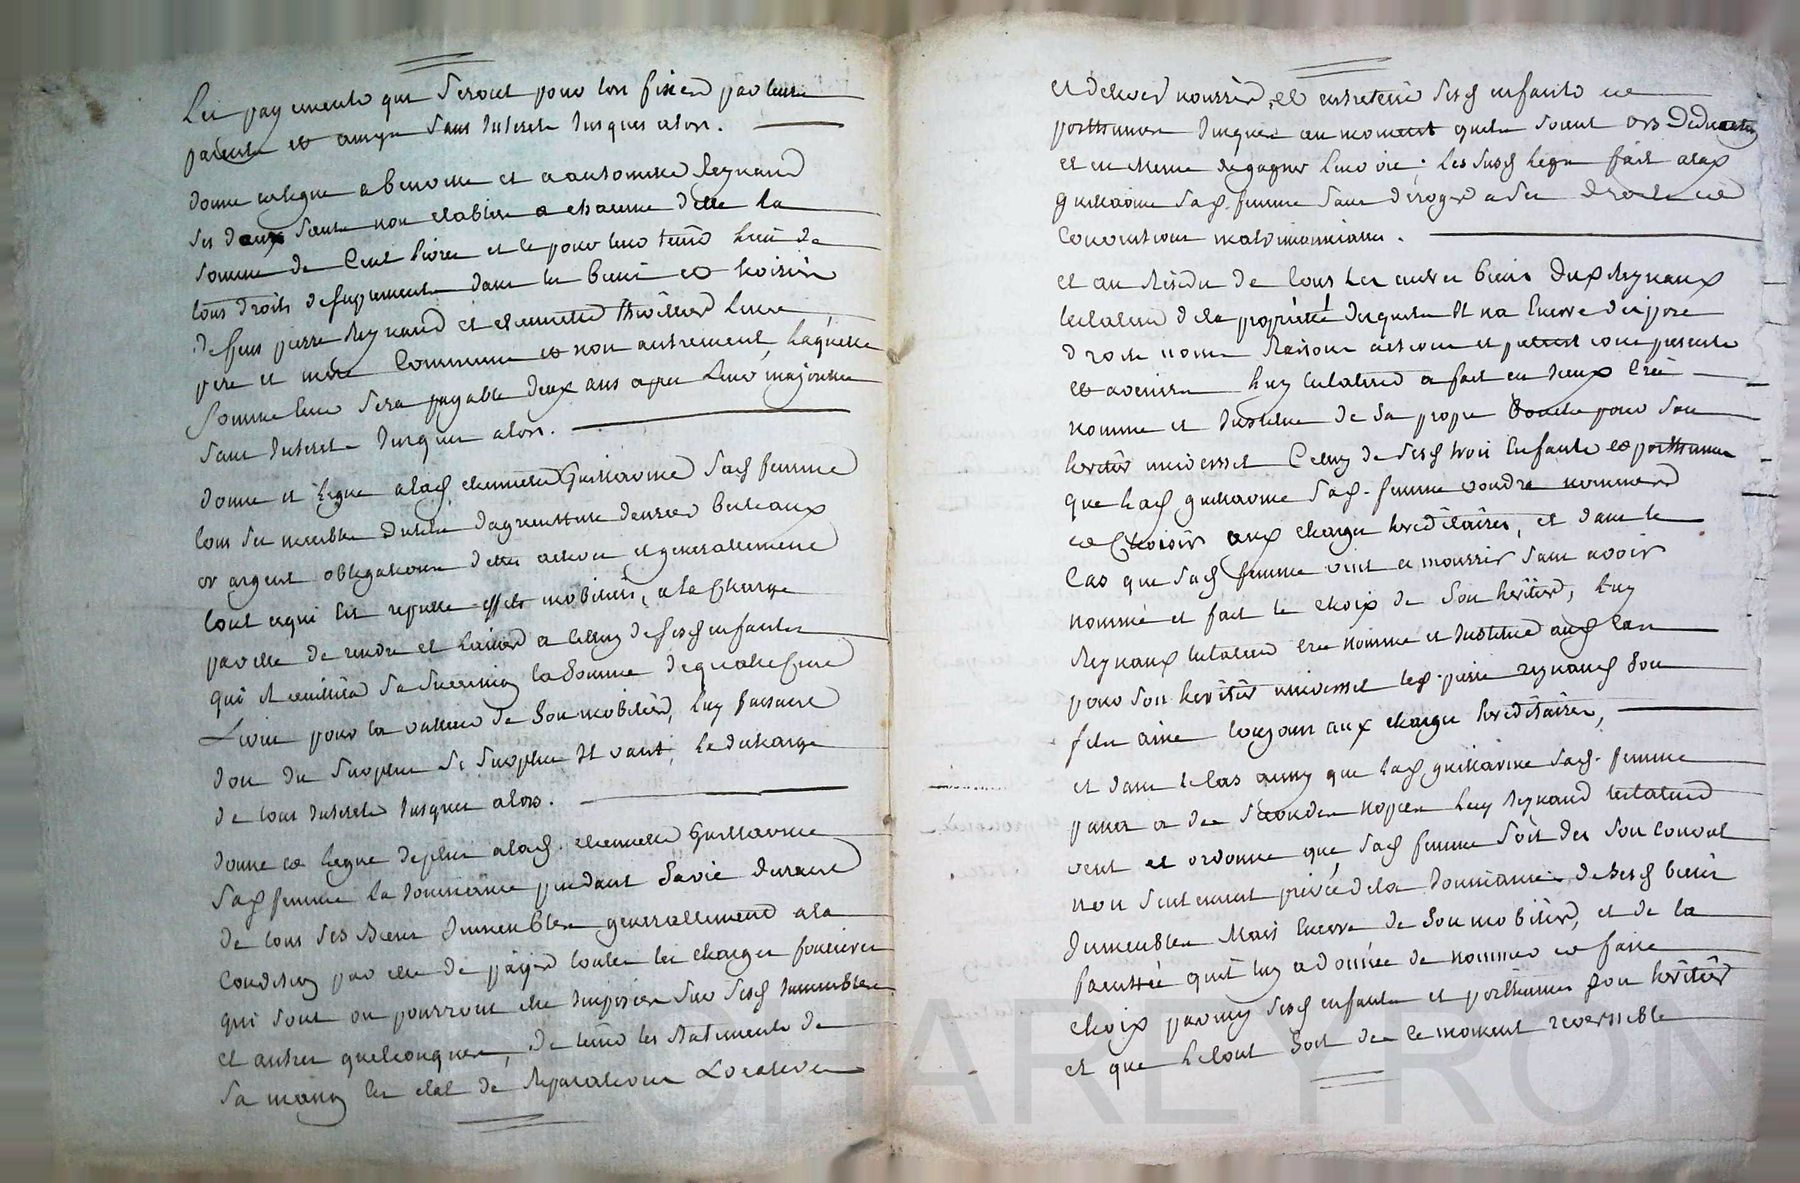 Les payements qui seront pour lors fixés par leurs
parents et amys sans interets jusques alors.
donne et legue a benoitte et a antoinette Reynaud
ses deux sœurs non etablies a chacune d'elle la
somme de Cent livres et ce pour leur tenir lieu de
tous droits de suplements dans les biens et hoirie
de feus pierre Reynaud et etiennette Thiollier leurs
pere et mere Communs et non autrement, laquelle
somme leur sera payable deux ans apres leur majorite
sans interets jusques alors.
donne et legue a lad. etiennette Guillaume sad. femme
tous ses meubles outils d'agriculture denrées bestiaux
or argent obligations dettes actives et generalement
tout ce qui est reputté effets mobiliers, a la Charge
par elle de rendre et laisser a celuy de sesd. enfants
qui recueillira sa succession la somme de quatre Cent
Livres pour la valleur de son mobilier, luy faisant
don du surplus si surplus il vaut, le decharge
de tous interets jusques alors.
donne et legue de plus a lad. etiennette Guillaume
sad. femme la jouissance pendant sa vie durant
de tous ses Biens immeubles generallement a la
Condition par elle de payer toutes les charges foncieres
qui sont ou pourront etre imposées sur sesd. immeubles
et autres quelconques, de tenir les batiments de
sa maison en etat de reparations Locatives
et d'elever nourrir, et entretenir sesd. enfants et
posthumes jusques au moment quils soient ors d'education
et en Meme de gagner leur vie; les susd. legs fait a lad.
guillaume sad. femme sans deroger a ses droits et
Conventions matrimoniales.
et au Residu de tous les autres biens dud. Reynaud
testateur de la propriété desquels Il na Encore disposé
droits noms Raisons actions et pretentions presents
et avenirs luy testateur a fait en iceux Créé
nommé et institue de sa propre Bouche pour son
heritier universel Celluy de sesd. trois Enfants et posthumes
que lad. guillaume sad. femme voudra nommer
et Choisir aux charges hereditaires, et dans le
Cas que sad. femme vint a mourrir sans avoir
nommé et fait le choix de son heritier, luy
Reynaud testateur Crée nomme et institue aud. Cas
pour son heritier universel led. pierre reynaud son
fils ainé toujours aux charges hereditaires,
et dans le Cas aussy que lad. guillaume sad. femme
passa a des secondes nopces luy Reynaud testateur
veut et ordonne que sad. femme soit des son convol
non seulement privée de la jouissance de sesd. biens
immeubles Mais Encore de son mobilier, et de la
faculté qu'il luy a donnée de nommer et faire
choix parmy sesd. enfants et posthumes son heritier
et que le tout soit des le moment reversible
CHAREYRON